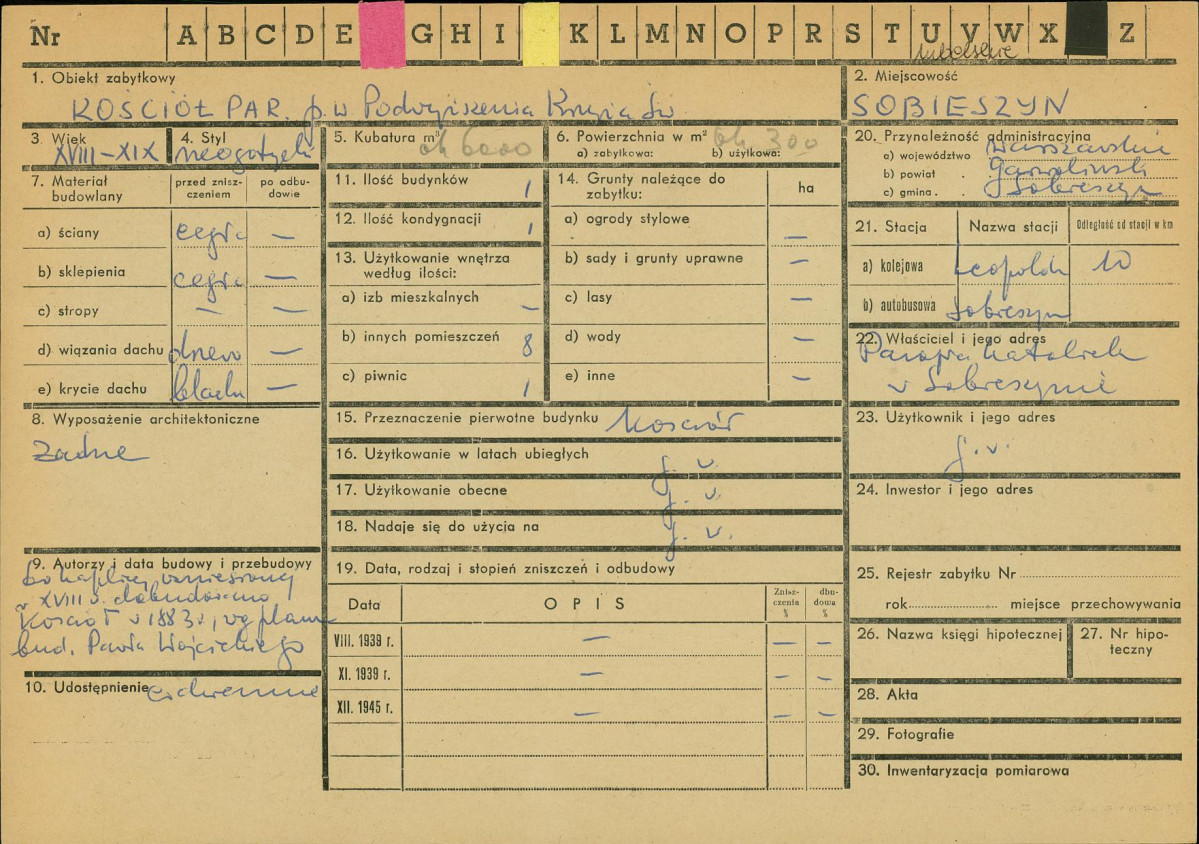 Nr A B C D E G H I K L M N O P R S T U V W X Z
lubelskie
1. Obiekt zabytkowy
KOŚCIÓŁ PAR. p.w Podwyższenia Krzyża Św
2. Miejscowość
SOBIESZYN
3. Wiek
XVIII-XIX
4. Styl
neogotycki
5. Kubatura m³
ok 6000
6. Powierzchnia w m²
a) zabytkowa: b) użytkowa:
ok 300
20. Przynależność administracyjna
a) województwo Warszawskie
b) powiat . Garwoliński
c) gmina . Sobieszyn
7. Materiał budowlany
przed zniszczeniem
po odbudowie
a) ściany cegła —
b) sklepienia cegła —
c) stropy — —
d) wiązania dachu drewo —
e) krycie dachu blacha —
8. Wyposażenie architektoniczne
żadne
9. Autorzy i data budowy i przebudowy
Do kaplicy wzniesionej
w XVIII w. dobudowano
Kościół w 1883 r., wg planu
bud. Pawła Wojcickiego
10. Udostępnienie codziennie
11. Ilość budynków 1
12. Ilość kondygnacji 1
13. Użytkowanie wnętrza
według ilości:
a) izb mieszkalnych —
b) innych pomieszczeń 8
c) piwnic 1
14. Grunty należące do
zabytku:
ha
a) ogrody stylowe —
b) sady i grunty uprawne —
c) lasy —
d) wody —
e) inne —
15. Przeznaczenie pierwotne budynku Kościół
16. Użytkowanie w latach ubiegłych j. w.
17. Użytkowanie obecne j. w.
18. Nadaje się do użycia na j. w.
19. Data, rodzaj i stopień zniszczeń i odbudowy
Data OPIS Zniszczenia % dbudowa %
VIII. 1939 r. — — —
XI. 1939 r. — — —
XII. 1945 r. — — —
21. Stacja Nazwa stacji Odległość od stacji w km
a) kolejowa Leopoldów 10
b) autobusowa Sobieszyn
22. Właściciel i jego adres
Parafia katolick
w Sobieszynie
23. Użytkownik i jego adres
j. w.
24. Inwestor i jego adres
25. Rejestr zabytku Nr
rok miejsce przechowywania
26. Nazwa księgi hipotecznej
27. Nr hipoteczny
28. Akta
29. Fotografie
30. Inwentaryzacja pomiarowa